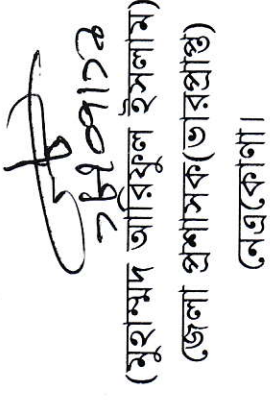 (মুহাম্মদ আরিফুল ইসলাম)
জেলা প্রশাসক(ভারপ্রাপ্ত)
নেত্রকোণা।